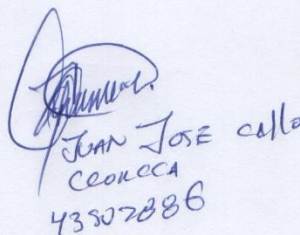 JUAN JOSE Callo
CCORCCA
43502886